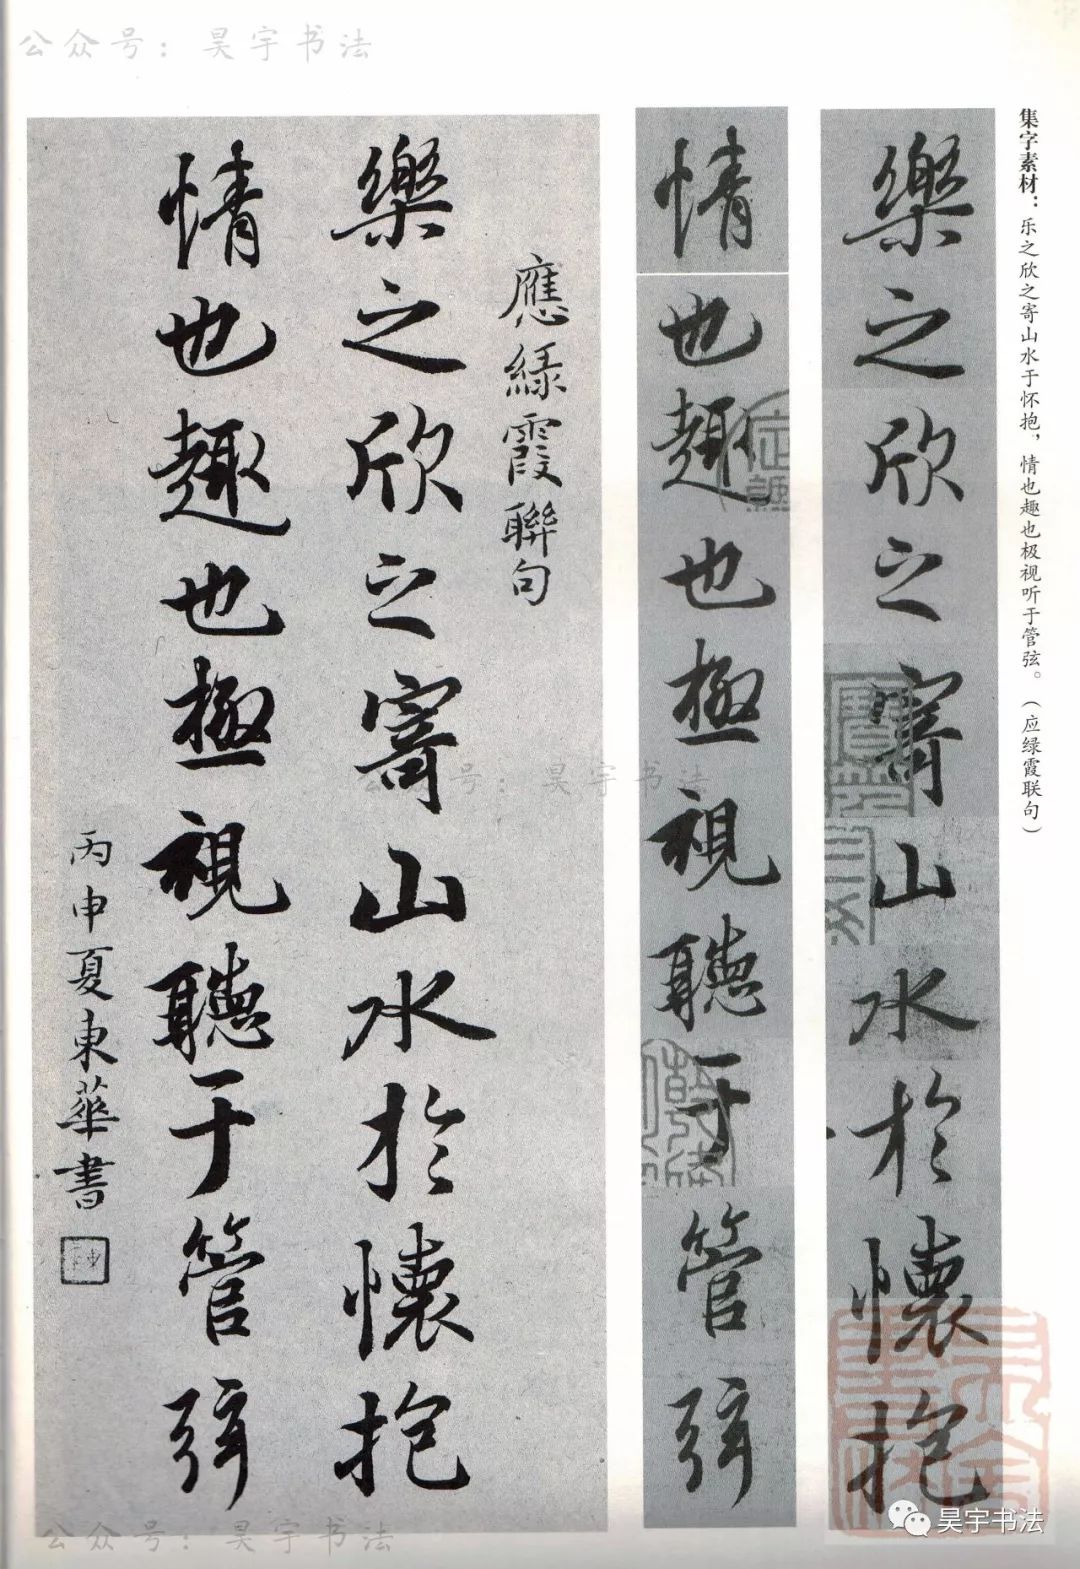 公众号：昊宇书法
集字素材：乐之欣之寄山水于怀抱，情也趣也极视听于管弦。（应绿霞联句）
樂之欣之寄山水於懷抱
情也趣也極視聽于管弦
應綠霞聯句
樂之欣之寄山水於懷抱
情也趣也極視聽于管弦
丙申夏東華書
公众号：昊宇书法
公众号：昊宇书法
昊宇书法